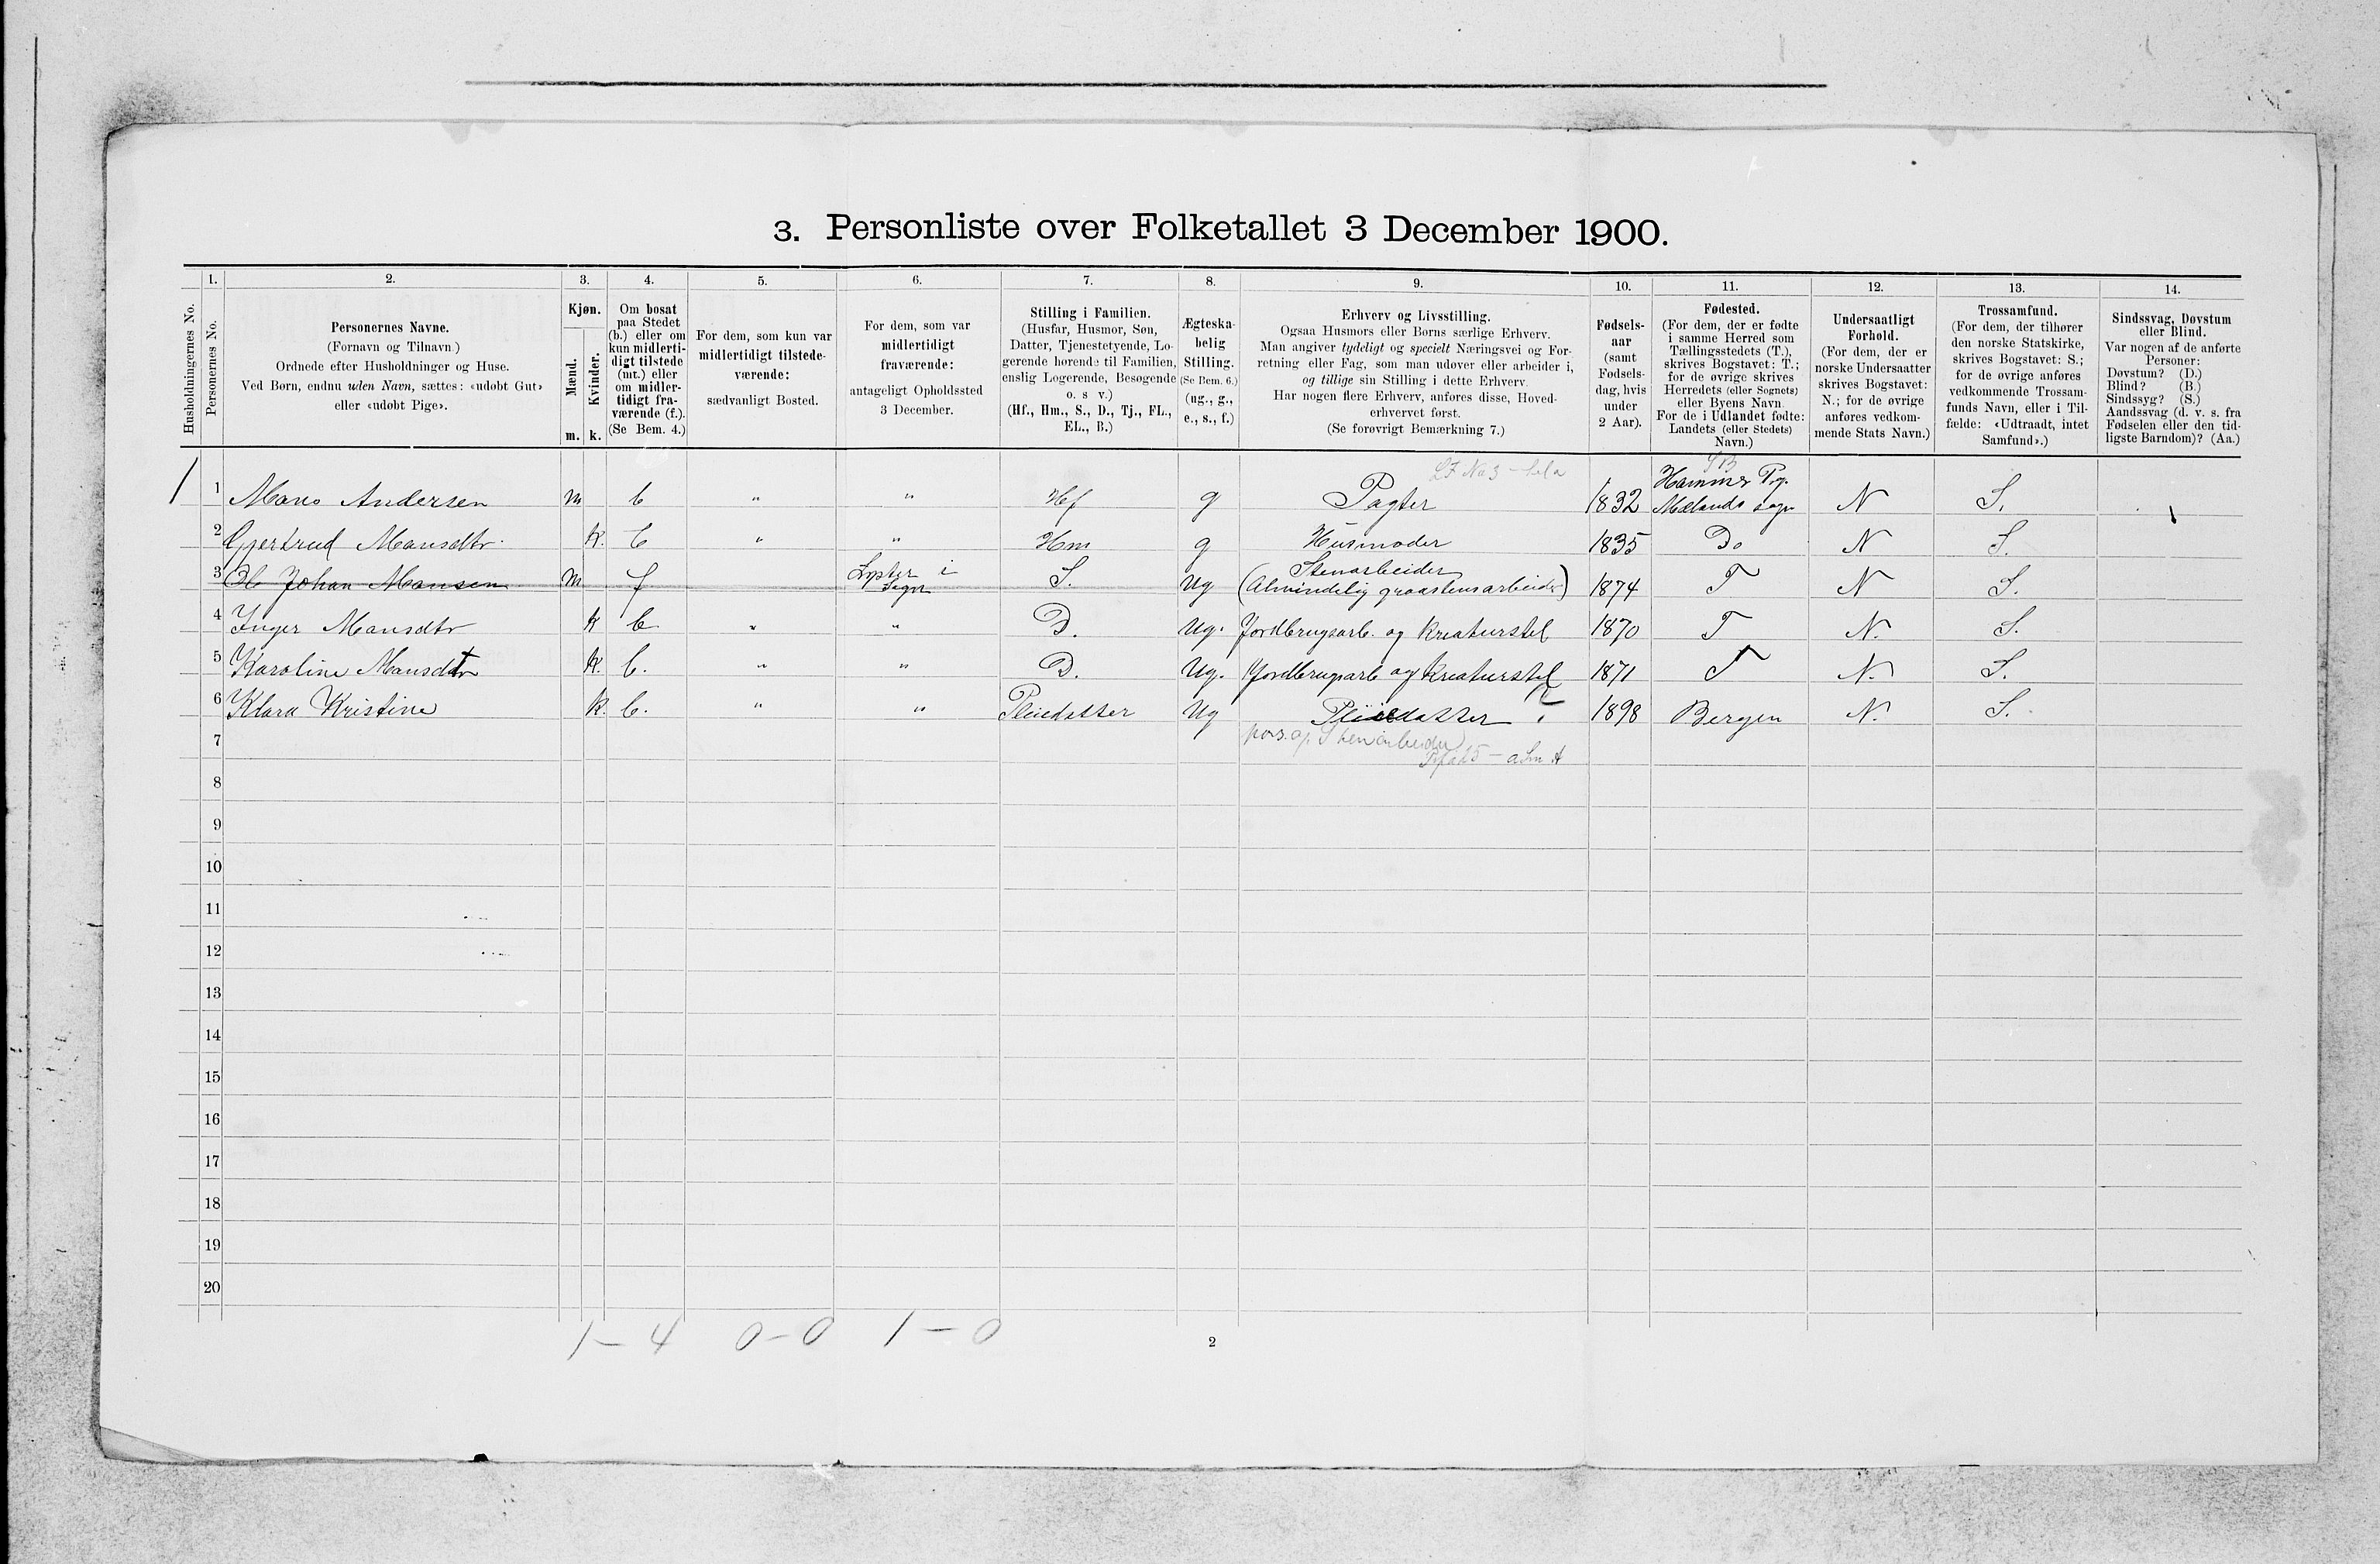 3. Personliste over Folketallet 3 December 1900.
1. 2. 3. 4. 5. 6. 7. 8. 9. 10. 11. 12. 13. 14.
Husholdningernes No.
Personernes No.
Personernes Navne.
(Fornavn og Tilnavn)
Ordnede efter Husholdninger og Huse.
Ved Børn, endnu uden Navn, sættes: «udøbt Gut»
eller «udøbt Pige».
Kjøn.
Mænd.
Kvinder.
m. k.
Om bosat
paa Stedet
(b.) eller om
kun midlerti-
digt tilstede
(mt.) eller
om midler-
tidigt fra-
værende (f.).
(Se Bem. 4.)
For dem, som kun var
midlertidigt tilstede-
værende:
sædvanligt Bosted.
For dem, som var
midlertidigt
fraværende:
antageligt Opholdssted
3 December.
Stilling i Familien.
(Husfar, Husmor, Søn,
Datter, Tjenestetyende, Lo-
gerende hørende til Familien,
enslig Logerende, Besøgende
o. s v.)
(Hf., Hm., S., D., Tj., FL.,
EL., B.)
Ægteska-
belig
Stilling.
(Se Bem. 6.)
(ug., g.,
e., s., f.)
Erhverv og Livsstilling.
Ogsaa Husmors eller Børns særlige Erhverv.
Man angiver tydeligt og specielt Næringsvei og For-
retning eller Fag, som man udøver eller arbeider i,
og tillige sin Stilling i dette Erhverv.
Har nogen flere Erhverv, anføres disse, Hoved-
erhvervet først.
(Se forøvrigt Bemærkning 7.)
Fødsels-
aar
(samt
Fødsels-
dag, hvis
under
2 Aar).
Fødested.
(For dem, der er fødte
i samme Herred som
Tællingsstedets (T.),
skrives Bogstavet: T.;
for de øvrige skrives
Herredets (eller Sognets)
eller Byens Navn.
For de i Udlandet fødte:
Landets (eller Stedets)
Navn.)
Undersaatligt
Forhold.
(For dem, der er
norske Undersaatter
skrives Bogstavet:
N.; for de øvrige
anføres vedkom-
mende Stats Navn.)
Trossamfund.
(For dem, der tilhører
den norske Statskirke,
skrives Bogstavet: S.;
for de øvrige anføres
vedkommende Trossam-
funds Navn, eller i Til-
fælde: «Udtraadt, intet
Samfund».)
Sindssvag, Døvstum
eller Blind.
Var nogen af de anførte
Personer:
Døvstum? (D.)
Blind? (B.)
Sindssyg? (S.)
Aandssvag (d. v. s. fra
Fødselen eller den tid-
ligste Barndom)? (Aa.)
1 1 Mons Andersen m b " " Hf g Pagter 1832 Hammer Pg. Mælands sogn N S.
2 Gjertrud Monsdtr. k. b " " Hm g Husmoder 1835 Do N S.
3 Ole Johan Monsen m f Lyster i Sogn S. ug Stenarbeider (Almindelig graastensarbeider) 1874 T N S.
4 Inger Monsdtr k b " " D. ug. Jordbrugsarb. og kreaturstel 1870 T N. S.
5 Karoline Monsdtr k. b. " " D. ug. Jordbrugsarb og kreaturstel 1871 T N. S.
6 Klara Kristine k. b. " " Pleiedatter ug Pleiedatter 1898 Bergen N. S.
7
8
9
10
11
12
13
14
15
16
17
18
19
20
1 – 4 0 – 0 1 – 0
2